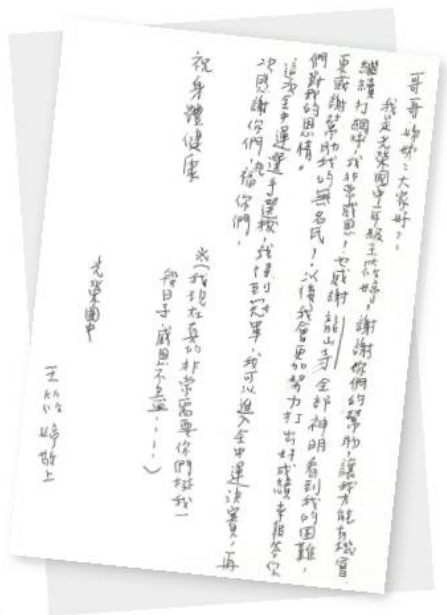 哥哥姊姊:大家好!。
我是光榮國中一年級王筱婷,謝謝你們的幫助,讓我才能有機會
繼續打網球,我非常感恩!也感謝龍山寺全部神明看到我的困難,
更感謝幫助我的無名氏!以後我會更加努力打出好成績來報答你
們對我的恩情。
這次全中運選手選拔,我得到冠軍,我可以進入全中運決賽,再
次感謝你們,祝福你們。
祝身體健康
※(我現在真的非常需要你們挺我一
段日子,感恩不盡...。)
光榮國中
王筱婷敬上